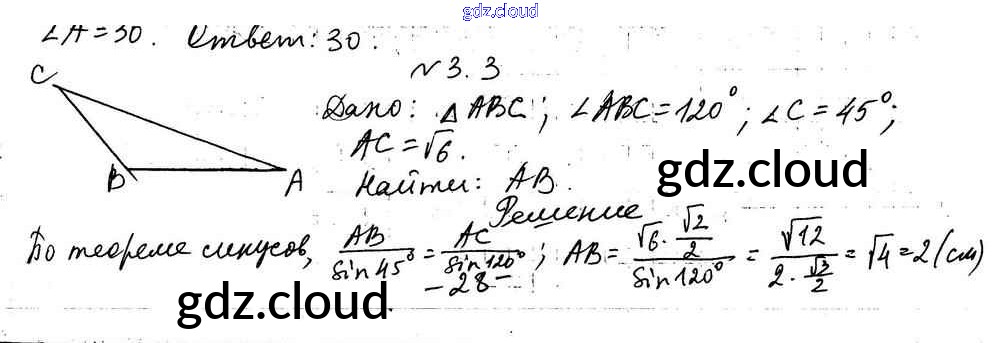 gdz.cloud
∠A=30. Ответ: 30.
N 3.3
C
Дано: △ABC; ∠ABC=120°; ∠C=45°;
AC=√6.
B A
Найти: AB.
gdz.cloud
Решение
По теореме синусов, AB/sin45° = AC/sin120°; AB = (√6·√2/2)/sin120° = √12/(2·√3/2) = √4=2(см)
-28-
gdz.cloud